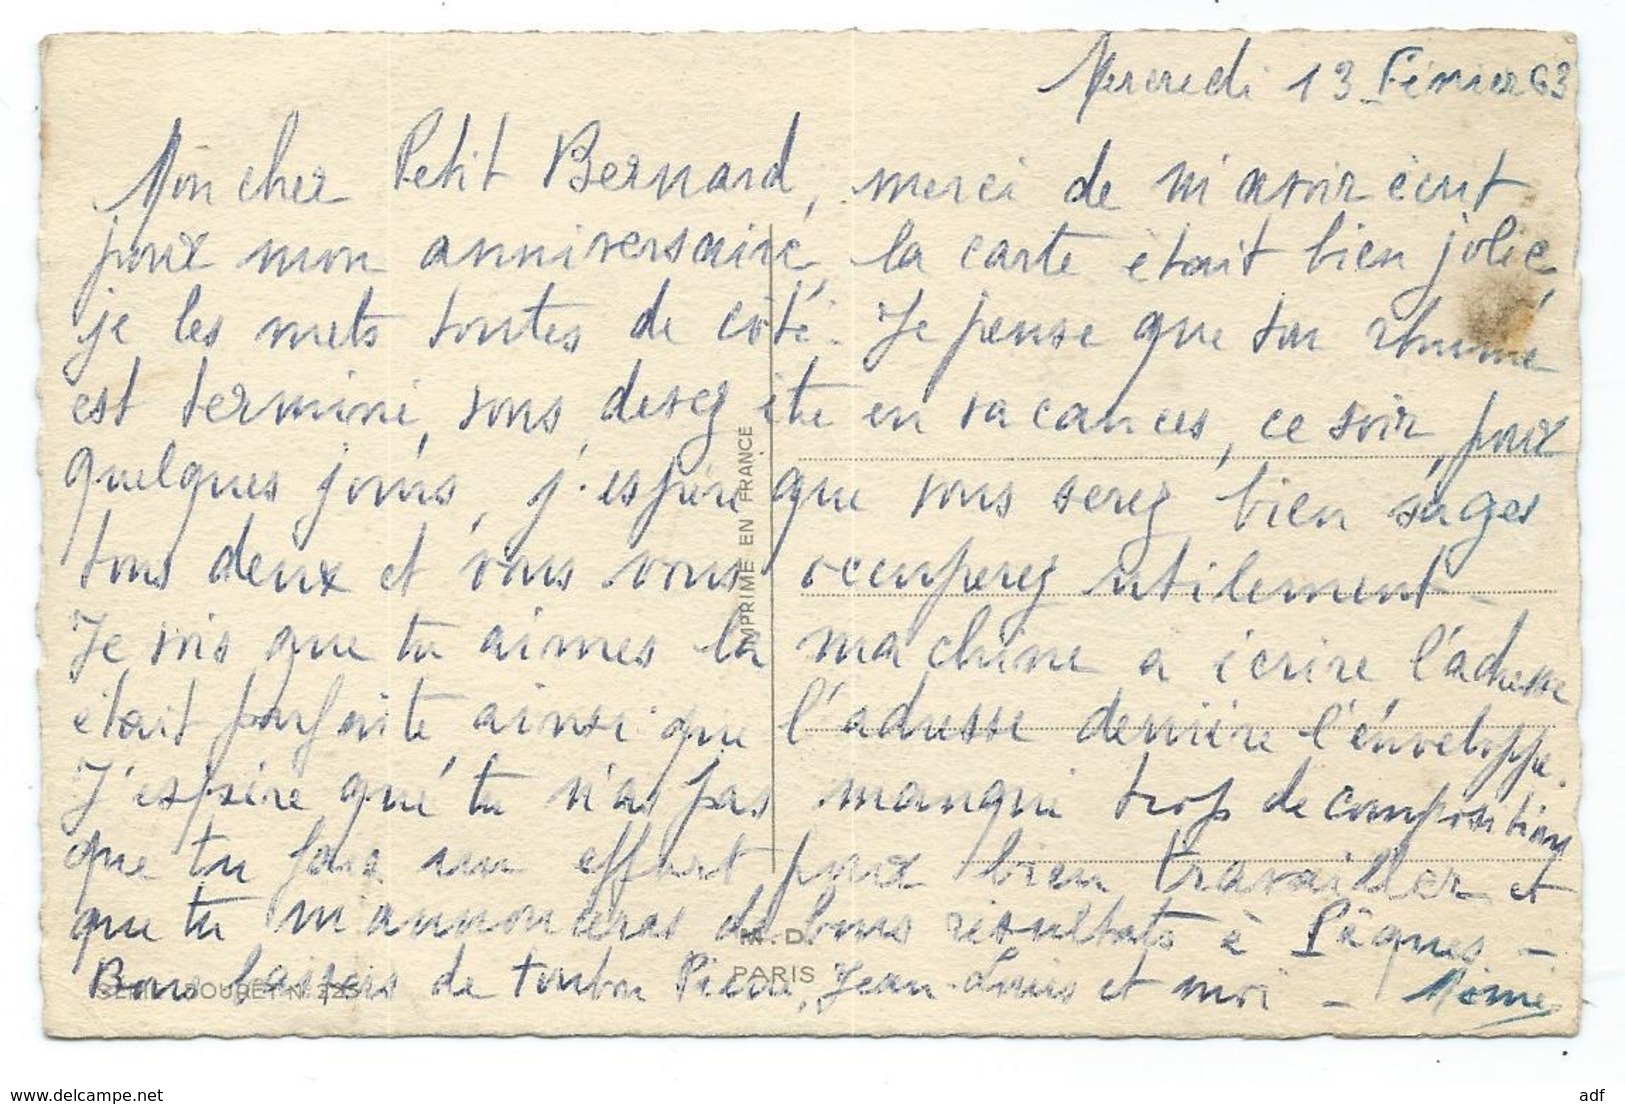 Mercredi 13 Février 63
Mon cher Petit Bernard, merci de m'avoir écrit
pour mon anniversaire, la carte était bien jolie,
je les mets toutes de côté. Je pense que ton rhume
est terminé, vous devez être en vacances, ce soir, pour
quelques jours, j'espère que vous serez bien sages
tous deux et vous vous occuperez utilement -
Je vois que tu aimes la machine a écrire, l'adresse
était parfaite ainsi que l'adresse derrière l'enveloppe.
J'espère que tu n'as pas manqué trop de compositions
que tu fais un effort pour bien travailler et
que tu m'annonceras de bons résultats à Pâques -
Bons baisers de tonton Pierre, Jean-Louis et moi - Mémé
IMPRIMÉ EN FRANCE
M.D.
PARIS
www.delcampe.net
adf